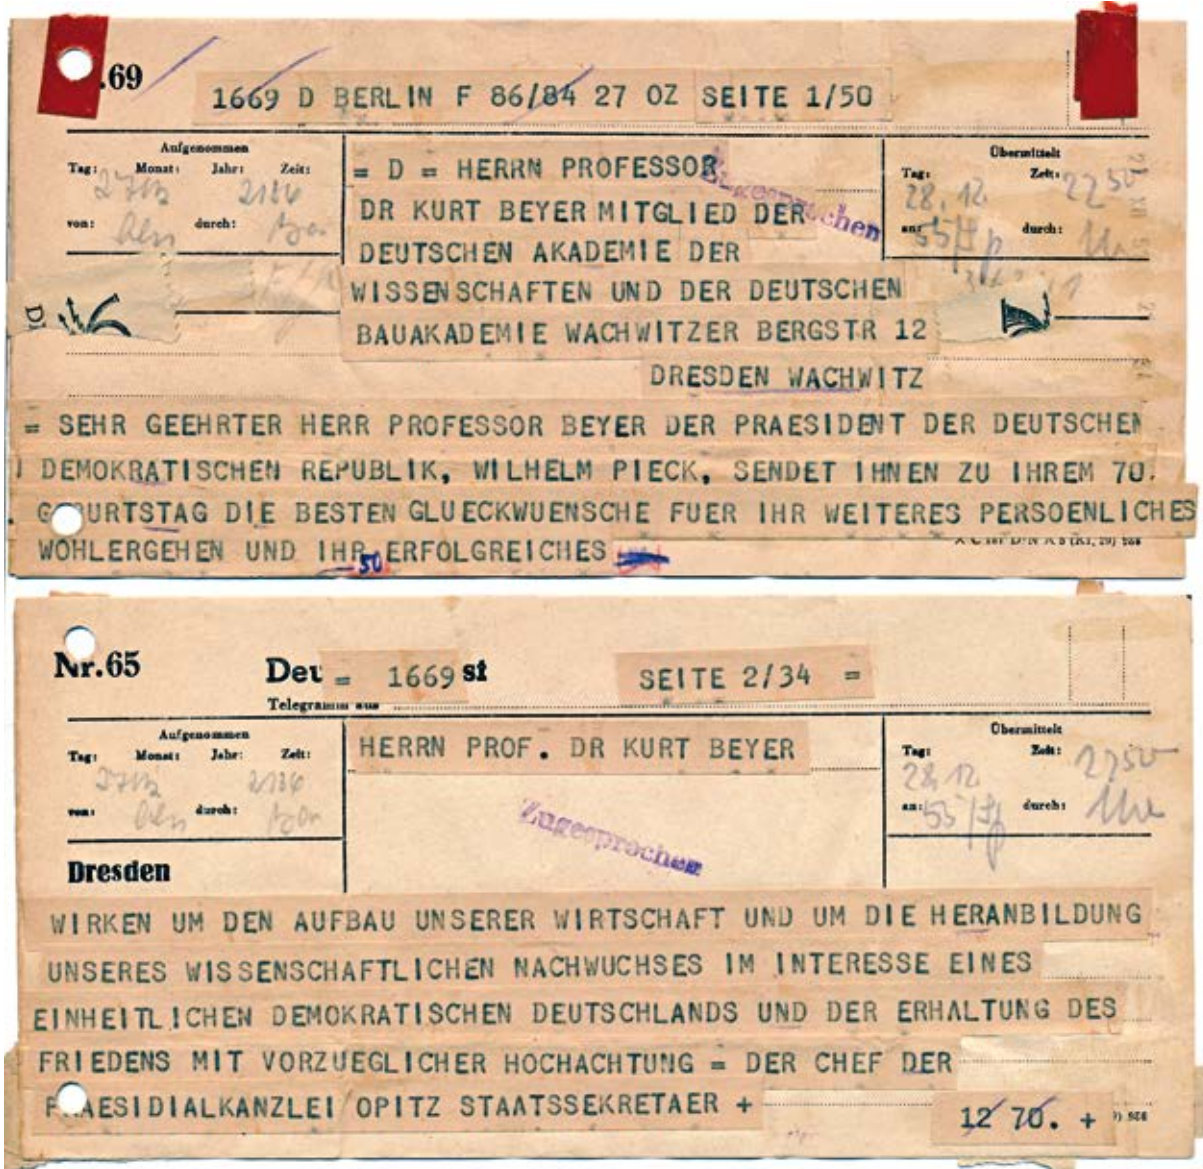 .69
1669 D BERLIN F 86/84 27 OZ SEITE 1/50
Aufgenommen
Tag: Monat: Jahr: Zeit:
2184
von: durch:
= D = HERRN PROFESSOR
DR KURT BEYER MITGLIED DER
DEUTSCHEN AKADEMIE DER
WISSENSCHAFTEN UND DER DEUTSCHEN
BAUAKADEMIE WACHWITZER BERGSTR 12
DRESDEN WACHWITZ
Zugesprochen
Übermittelt
Tag: Zeit:
28.12. 2250
an: durch:
= SEHR GEEHRTER HERR PROFESSOR BEYER DER PRAESIDENT DER DEUTSCHEN
DEMOKRATISCHEN REPUBLIK, WILHELM PIECK, SENDET IHNEN ZU IHREM 70.
G URTSTAG DIE BESTEN GLUECKWUENSCHE FUER IHR WEITERES PERSOENLICHES
WOHLERGEHEN UND IHR ERFOLGREICHES
50
Nr.65 Deu = 1669 st SEITE 2/34 =
Telegramm aus
Aufgenommen
Tag: Monat: Jahr: Zeit:
von: durch:
Dresden
HERRN PROF. DR KURT BEYER
Zugesprochen
Übermittelt
Tag: Zeit:
28.12. 2250
an: durch:
WIRKEN UM DEN AUFBAU UNSERER WIRTSCHAFT UND UM DIE HERANBILDUNG
UNSERES WISSENSCHAFTLICHEN NACHWUCHSES IM INTERESSE EINES
EINHEITLICHEN DEMOKRATISCHEN DEUTSCHLANDS UND DER ERHALTUNG DES
FRIEDENS MIT VORZUEGLICHER HOCHACHTUNG = DER CHEF DER
P AESIDIALKANZLEI OPITZ STAATSSEKRETAER +
12 70. +